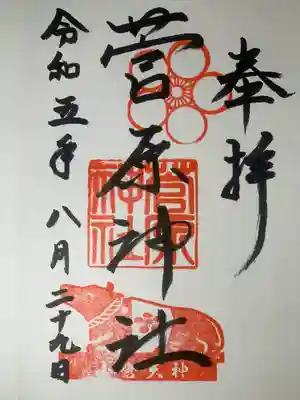 奉拝
菅原神社
令和五年 八月 二十九日
菅原神社